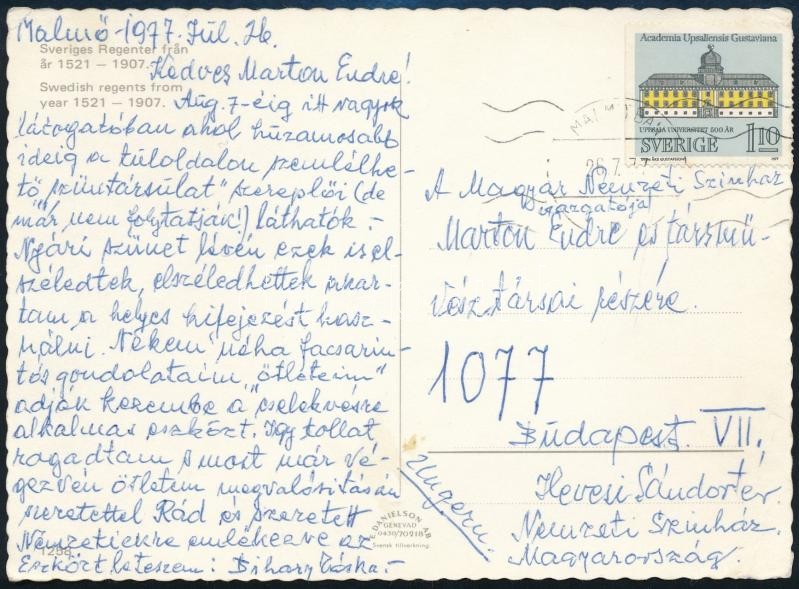 Malmö-1977. Júl. 26.
Sveriges Regenter från
år 1521 – 1907.
Kedves Marton Endre!
Swedish regents from
year 1521 – 1907.
Aug. 7-éig itt vagyok
látogatóban ahol húzamosabb
ideig a túloldalon szemlélhe-
tő „színtársulat" szereplői (de
már nem folytatják!) láthatók.-
Nyári szünet lévén ezek is el-
széledtek, elszéledhettek akar-
tam a helyes kifejezést hasz-
nálni. Nekem néha facsarin-
tós gondolataim, „ötleteim"
adják kezembe a cselekvésre
alkalmas eszközt. Így tollat
ragadtam s most már vé-
gezvén ötletem megvalósításán
szeretettel Rád és szeretett
Nemzetiekre emlékezve az
Eszközt leteszem: Bihary Jóska.-
1258
Academia Upsaliensis Gustaviana
UPPSALA UNIVERSITET 500 ÅR
SVERIGE 1.10
1977
26.7.77
A Magyar Nemzeti Színház
igazgatója
Marton Endre és társmű-
vész társai részére.
1077
Budapest. VII.
Hevesi Sándor tér.
Nemzeti Színház.
Magyarország.
Ungern.
E. DANIELSON AB
GENEVAD
0430/70218
Svensk tillverkning.